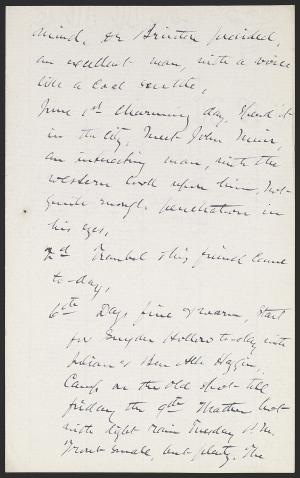 mind. Dr Brinton presided,
an excellent man, with a voice
like a coal scuttle.
June 1st Charming day, Spend it
in the city, Meet John Muir,
an interesting man, with the
western look upon him, Not
quite enough penetration in
his eyes.
2d Traubel & his friend came
to-day.
6th Day fine & warm, Start
for Snyder Hollow to-day with
Julian &
Camp on the old spot till
friday the 9th Weather hot
with light rain Tuesday P.M.
Trout small, but plenty. The